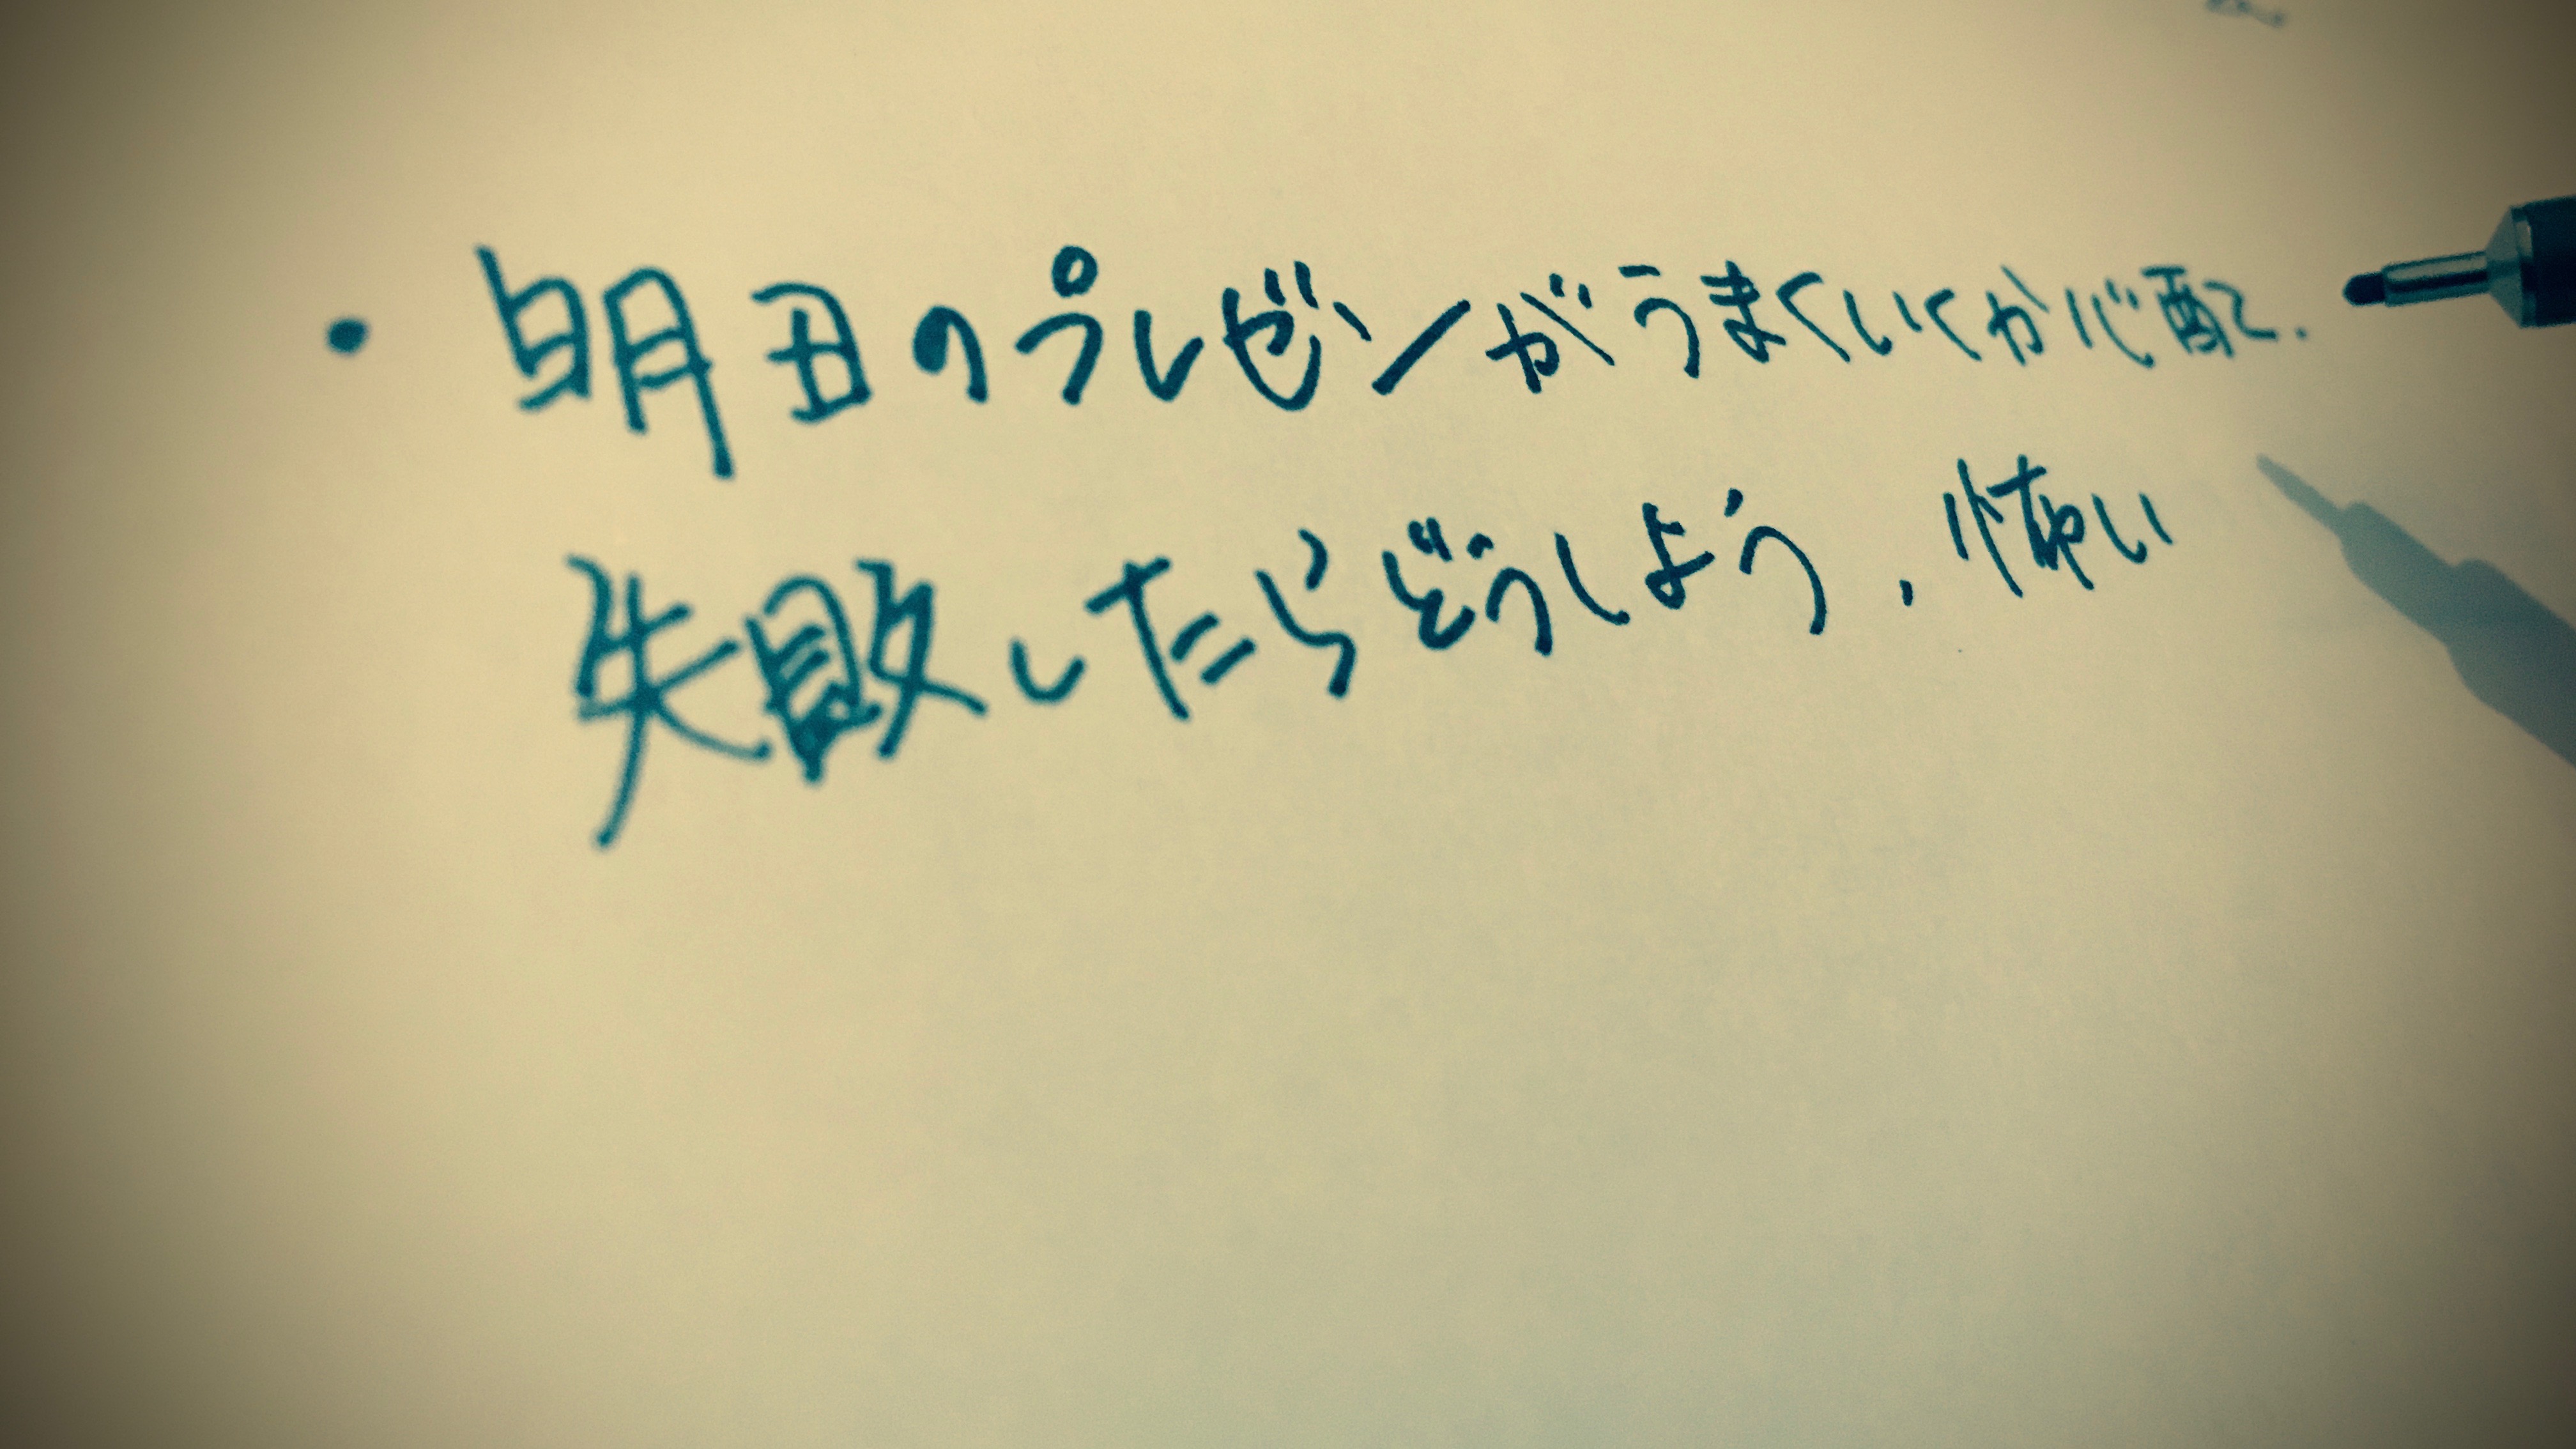 ・明日のプレゼンがうまくいくか心配.
失敗したらどうしよう.怖い